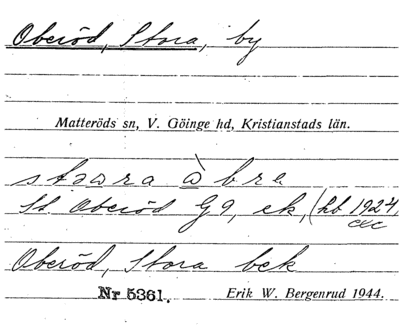 Oberöd, Stora, by
Matteröds sn, V. Göinge hd, Kristianstads län.
stɷra ὰ bre
St. Oberöd G9, ek, (hb 1924,
Oberöd, Stora bek
Nr 5361. Erik W. Bergenrud 1944.